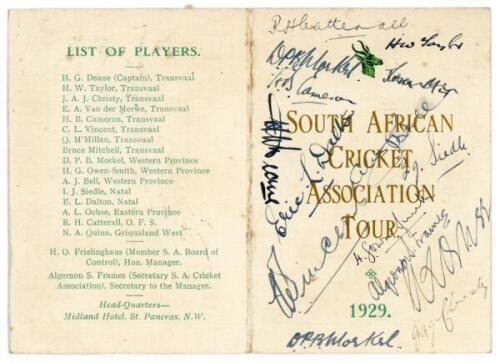 LIST OF PLAYERS.
H. G. Deane (Captain), Transvaal
H. W. Taylor, Transvaal
J. A. J. Christy, Transvaal
E. A. Van der Merwe, Transvaal
H. B. Cameron, Transvaal
C. L. Vincent, Transvaal
Q. M'Millan, Transvaal
Bruce Mitchell, Transvaal
D. P. B. Morkel, Western Province
H. G. Owen-Smith, Western Province
A. J. Bell, Western Province
I. J. Siedle, Natal
E. L. Dalton, Natal
A. L. Ochse, Eastern Province
R. H. Catterall, O. F. S.
N. A. Quinn, Griqualand West
H. O. Frielinghaus (Member S. A. Board of
Control), Hon. Manager.
Algernon S. Frames (Secretary S. A. Cricket
Association), Secretary to the Manager.
Head-Quarters—
Midland Hotel, St. Pancras, N.W.
RHCatterall
HW Taylor
DPBMorkel
HB Cameron
SOUTH AFRICAN
CRICKET
ASSOCIATION
TOUR
1929.
Eric L Dalton
IJ. Siedle
Algernon Frames
DPBMorkel